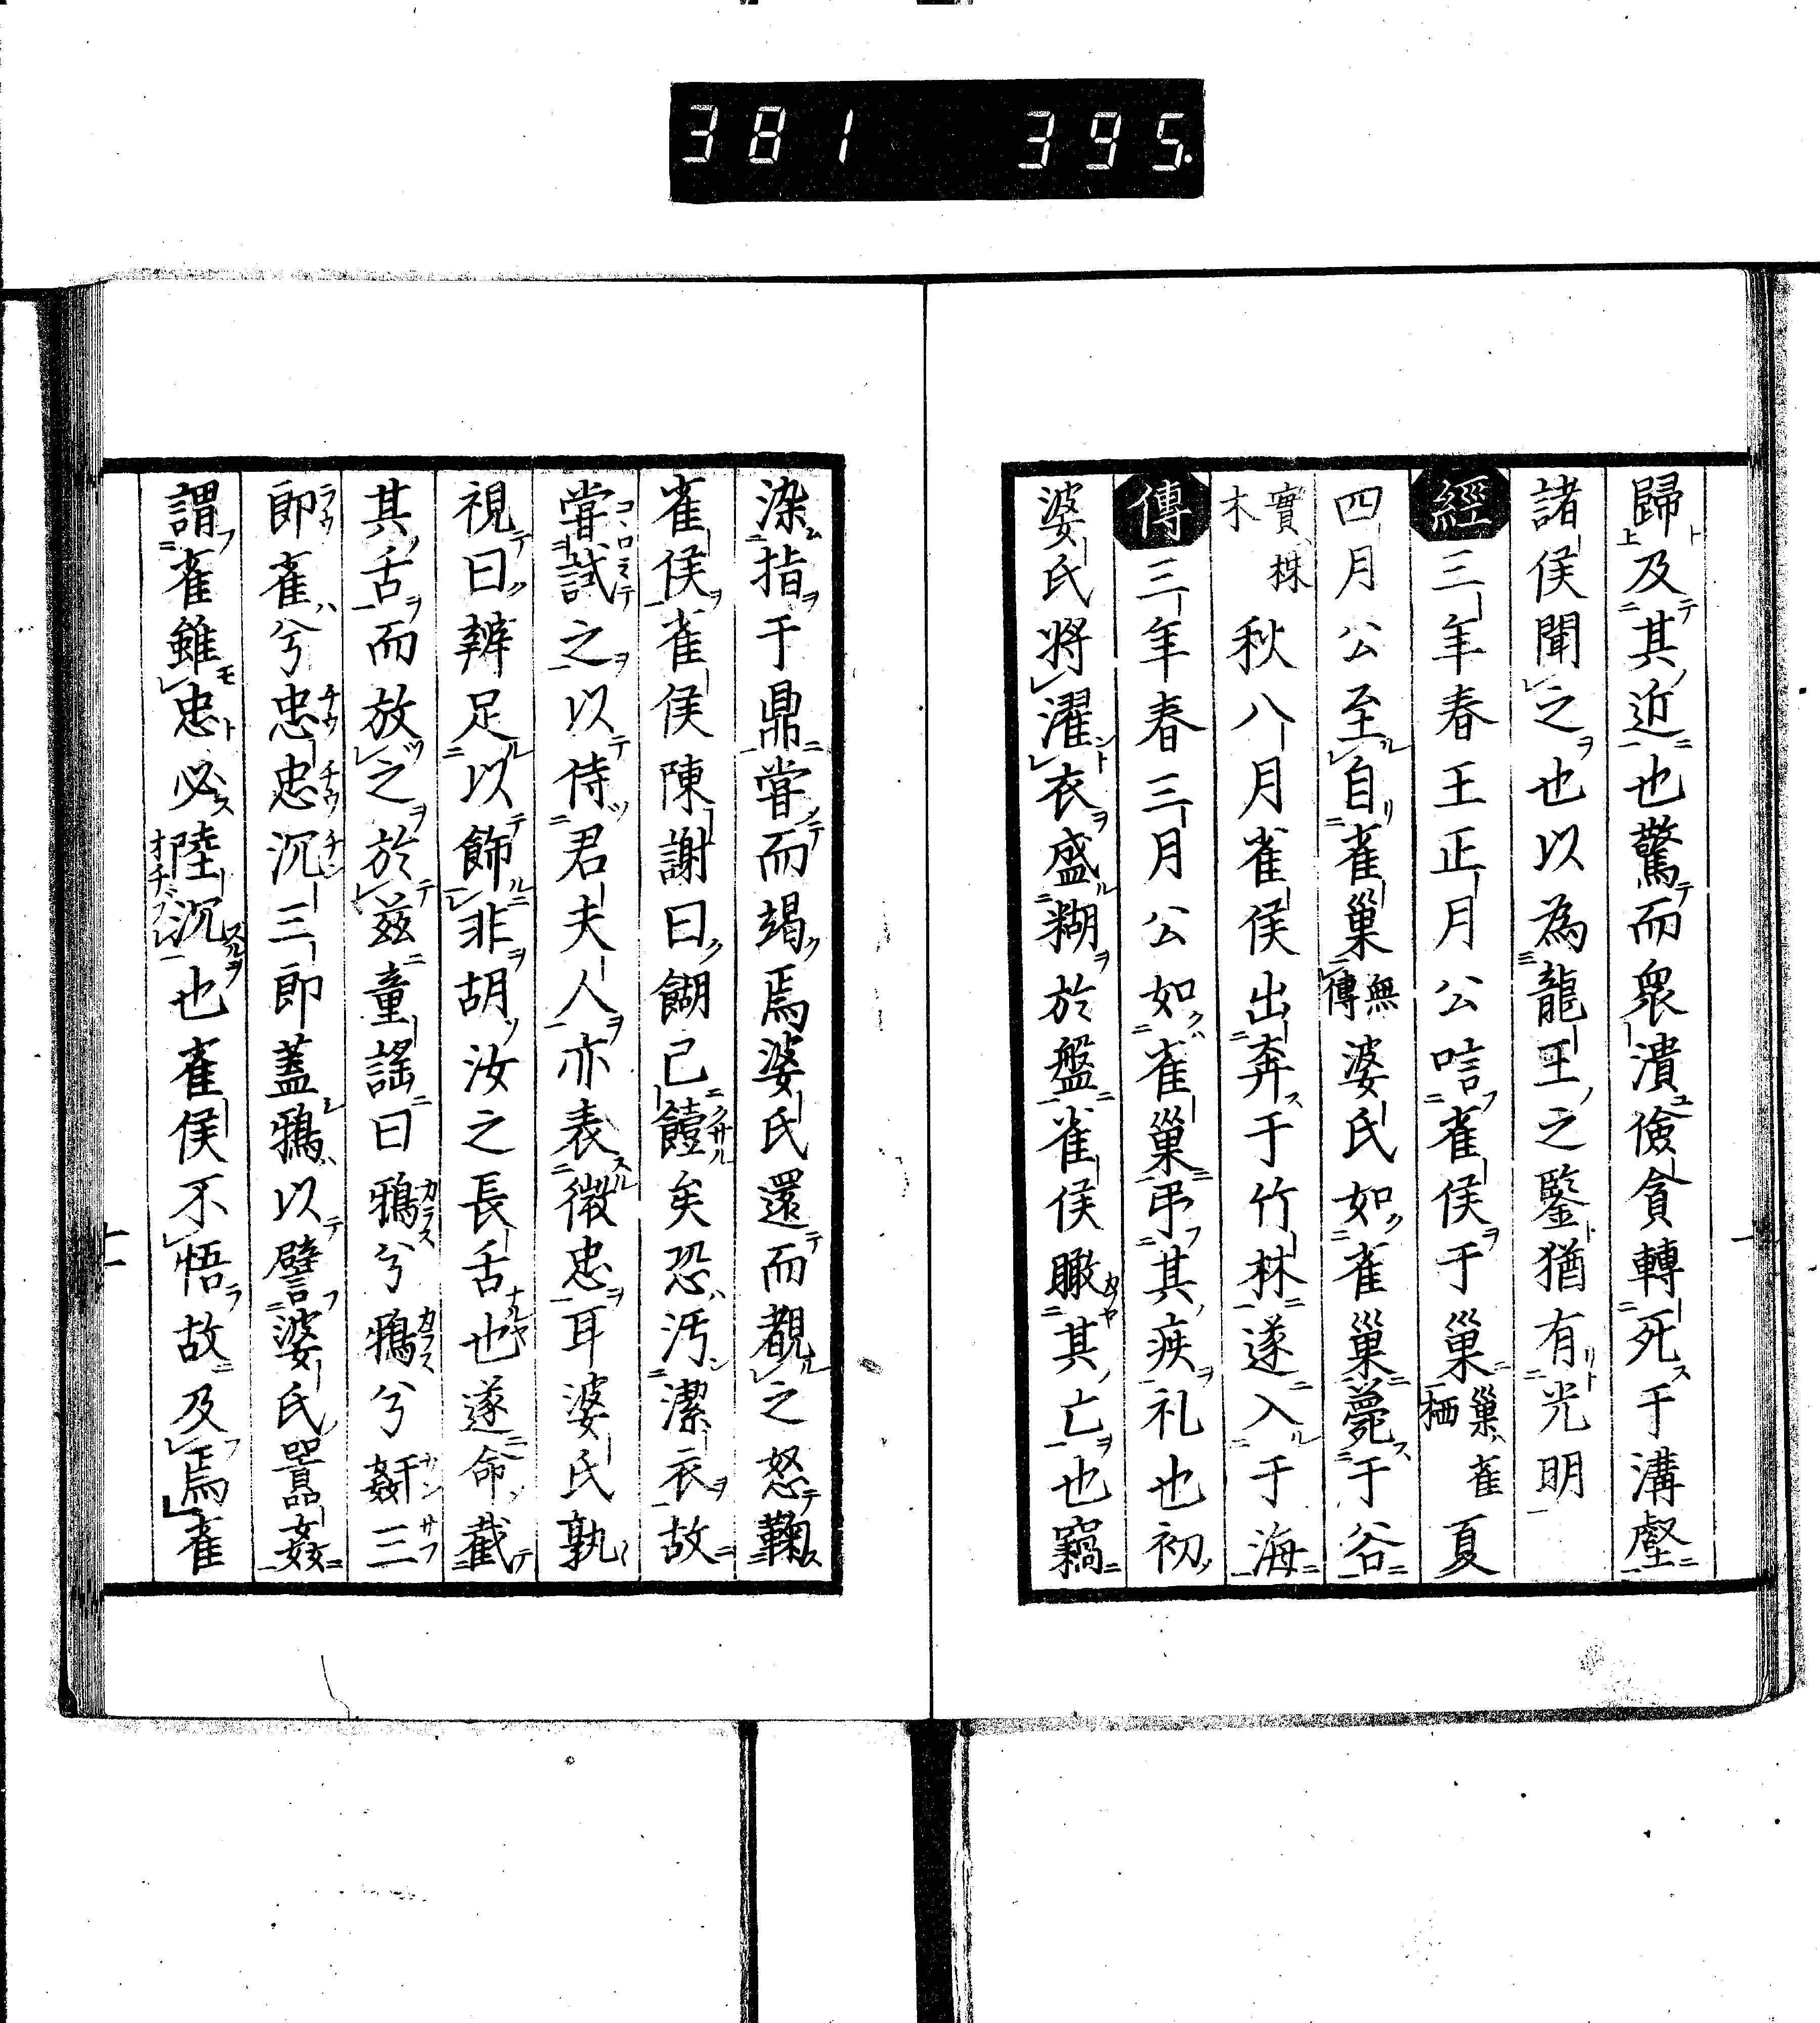 381 395.
歸及其近也驚而衆潰儉貪轉死于溝壑
諸侯聞之也以為龍王之鑒猶有光明
經三年春王正月公唁雀侯于巢巢雀栖夏
四月公至自雀巢無傳婆氏如雀巢薨于谷
實株木秋八月雀侯出奔于竹林遂入于海
傳三年春三月公如雀巢弔其疾礼也初
婆氏將濯衣盛糊於盤雀侯瞰其亡也竊
染指于鼎甞而竭焉婆氏還而覩之怒鞠
雀侯雀侯陳謝曰餬己饐矣恐汚潔衣故
甞試之以侍君夫人亦表微忠耳婆氏孰
視曰辨足以飾非胡汝之長舌也遂命截
其舌而放之於兹童謡曰鴉兮鴉兮姦干三
郎雀兮忠忠沉三郎蓋鴉以譬婆氏嚚姦
謂雀雖忠必陸沉也雀侯不悟故及焉雀